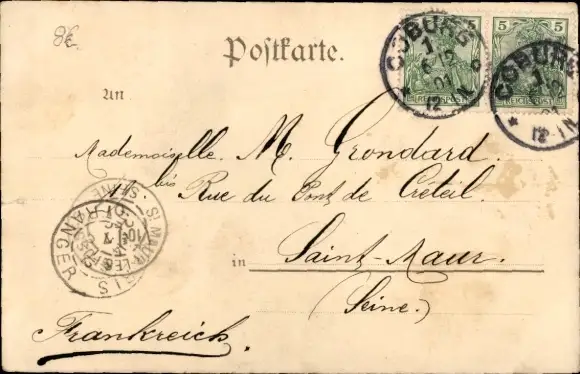 8£
Postkarte.
5 5
COBURG
1
6-12
01
* 12-1N
REICHSPOST
COBURG
1
* 12-1N
REICHSPOST
An
Mademoiselle M. Grondard.
11 bis Rue du Pont de Créteil.
in Saint-Maur.
(Seine).
Frankreich.
ST MAUR-LES
SEINE
PARIS
ETRANGER